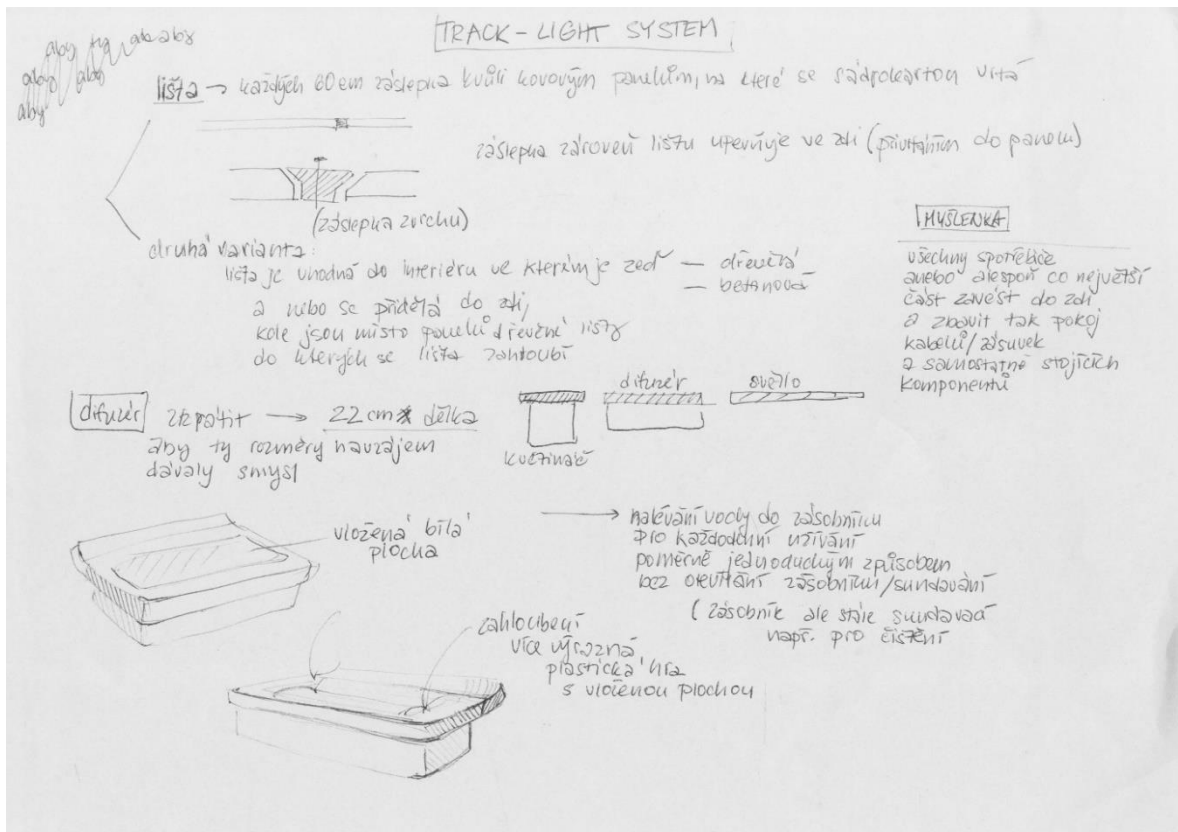 TRACK-LIGHT SYSTEM
aby ty aby
aby aby
aby
lišta → každých 60cm záslepka kvůli kovovým panelům, na které se sádrokarton vrtá
záslepka zároveň lištu upevňuje ve zdi (přivrtáním do panelu)
(záslepka zvrchu)
druhá varianta:
lišta je vhodná do interiéru ve kterém je zeď — dřevěná
— betonová
a nebo se přidělá do zdi,
kde jsou místo panelů dřevěné lišty
do kterých se lišta zahloubí
MYŠLENKA
všechny spotřebiče
anebo alespoň co největší
část zavést do zdi
a zbavit tak pokoj
kabelů/zásuvek
a samostatně stojících
komponentů
difuzér zkrátit → 22cm délka
aby ty rozměry navzájem
dávaly smysl
květináč
difuzér
světlo
vložená bílá
plocha
→ nalévání vody do zásobníku
pro každodenní užívání
poměrně jednoduchým způsobem
bez otevírání zásobníku/sundavání
(zásobník ale stále sundavací
např. pro čištění
zahloubení
více výrazná
plastická hra
s vloženou plochou